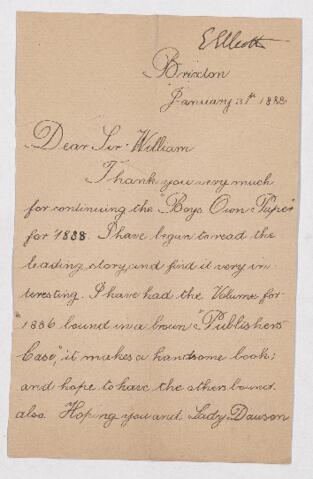 Brixton
January 31st 1888
Dear Sir William
Thank you very much
for continuing the "Boys Own Paper"
for 1888. I have begun to read the
leading story, and find it very in-
teresting. I have had the Volume for
1886 bound in a brown "Publishers
Case", it makes a handsome book;
and hope to have the others bound
also. Hoping you and Lady Dawson